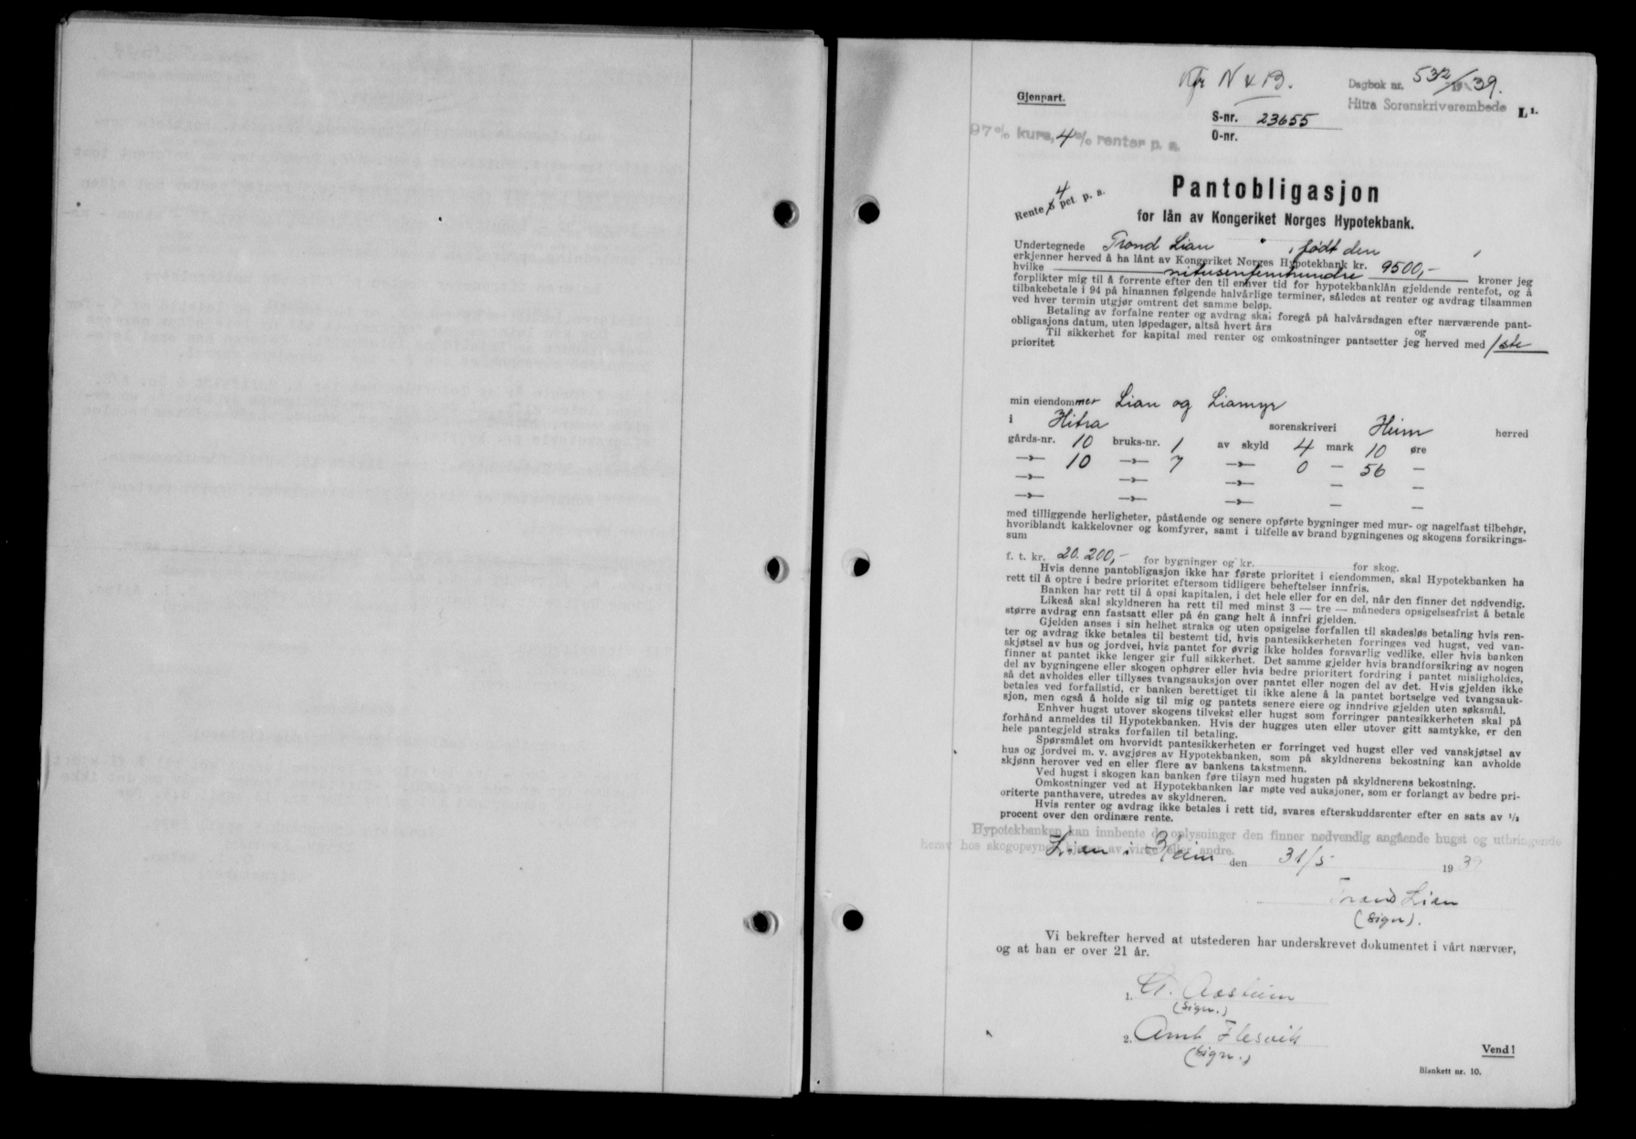 Kfr N & B.
Dagbok nr. 532/1939.
Hitra Sorenskriverembede
L¹.
Gjenpart.
S-nr. 23655
O-nr.
97% kurs, 4% renter p. a.
Rente 4 pct p. a.
Pantobligasjon
for lån av Kongeriket Norges Hypotekbank.
Undertegnede Trond Lian , født den ,
erkjenner herved å ha lånt av Kongeriket Norges Hypotekbank kr. 9500,-
hvilke nitusenfemhundre kroner jeg
forplikter mig til å forrente efter den til enhver tid for hypotekbanklån gjeldende rentefot, og å
tilbakebetale i 94 på hinannen følgende halvårlige terminer, således at renter og avdrag tilsammen
ved hver termin utgjør omtrent det samme beløp.
Betaling av forfalne renter og avdrag skal foregå på halvårsdagen efter nærværende pant-
obligasjons datum, uten løpedager, altså hvert års og
Til sikkerhet for kapital med renter og omkostninger pantsetter jeg herved med 1ste
prioritet
min eiendommer Lian og Liamyr
i Hitra sorenskriveri Heim herred
gårds-nr. 10 bruks-nr. 1 av skyld 4 mark 10 øre
—»— 10 —»— 7 —»— 0 — 56 —
—»— —»— —»— — —
—»— —»— —»— — —
med tilliggende herligheter, påstående og senere opførte bygninger med mur- og nagelfast tilbehør,
hvoriblandt kakkelovner og komfyrer, samt i tilfelle av brand bygningenes og skogens forsikrings-
sum
f. t. kr. 20.200,- for bygninger og kr. for skog.
Hvis denne pantobligasjon ikke har første prioritet i eiendommen, skal Hypotekbanken ha
rett til å optre i bedre prioritet eftersom tidligere beheftelser innfris.
Banken har rett til å opsi kapitalen, i det hele eller for en del, når den finner det nødvendig.
Likeså skal skyldneren ha rett til med minst 3 — tre — måneders opsigelsesfrist å betale
større avdrag enn fastsatt eller på én gang helt å innfri gjelden.
Gjelden anses i sin helhet straks og uten opsigelse forfallen til skadesløs betaling hvis ren-
ter og avdrag ikke betales til bestemt tid, hvis pantesikkerheten forringes ved hugst, ved van-
skjøtsel av hus og jordvei, hvis pantet for øvrig ikke holdes forsvarlig vedlike, eller hvis banken
finner at pantet ikke lenger gir full sikkerhet. Det samme gjelder hvis brandforsikring av nogen
del av bygningene eller skogen ophører eller hvis bedre prioritert fordring i pantet misligholdes,
så det avholdes eller tillyses tvangsauksjon over pantet eller nogen del av det. Hvis gjelden ikke
betales ved forfallstid, er banken berettiget til ikke alene å la pantet bortselge ved tvangsauk-
sjon, men også å holde sig til mig og pantets senere eiere og inndrive gjelden uten søksmål.
Enhver hugst utover skogens tilvekst eller hugst som forringer pantesikkerheten skal på
forhånd anmeldes til Hypotekbanken. Hvis der hugges uten eller utover gitt samtykke, er den
hele pantegjeld straks forfallen til betaling.
Spørsmålet om hvorvidt pantesikkerheten er forringet ved hugst eller ved vanskjøtsel av
hus og jordvei m. v. avgjøres av Hypotekbanken, som på skyldnerens bekostning kan avholde
skjønn herover ved en eller flere av bankens takstmenn.
Ved hugst i skogen kan banken føre tilsyn med hugsten på skyldnerens bekostning.
Omkostninger ved at Hypotekbanken lar møte ved auksjoner, som er forlangt av bedre pri-
oriterte panthavere, utredes av skyldneren.
Hvis renter og avdrag ikke betales i rett tid, svares efterskuddsrenter efter en sats av ½
procent over den ordinære rente.
Hypotekbanken kan innhente de oplysninger den finner nødvendig angående hugst og utbringende
herav hos skogopsynet, kjøper av virke eller andre.
Lian i Heim den 31/5 1939
Trond Lian
(sign).
Vi bekrefter herved at utstederen har underskrevet dokumentet i vårt nærvær,
og at han er over 21 år.
1.
(sign.)
2. Flesvik
(sign.)
Vend!
Blankett nr. 10.